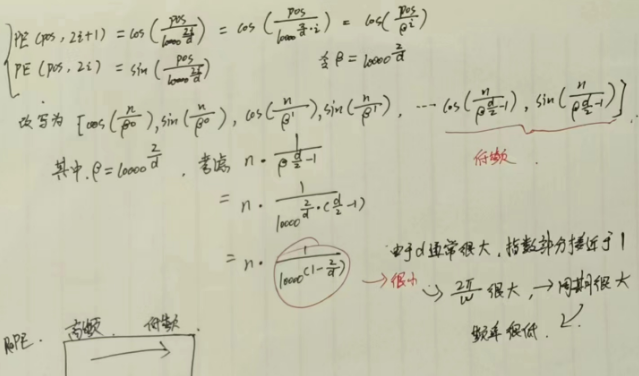 PE(pos, 2i+1) = cos(pos/10000^(2i/d)) = cos(pos/10000^(2/d·i)) = cos(pos/β^i)
PE(pos, 2i) = sin(pos/10000^(2i/d)) 令β=10000^(2/d)
改写为 [cos(n/β^0), sin(n/β^0), cos(n/β^1), sin(n/β^1), … cos(n/β^(d/2-1)), sin(n/β^(d/2-1))]
其中, β=10000^(2/d), 考虑 n·1/β^(d/2-1) 低频.
= n·1/10000^(2/d·(d/2-1))
= n·1/10000^(1-2/d) →很小
由于d通常很大, 指数部分接近于1
2π/w 很大, →周期很大
频率很低.
RoPE. 高频. 低频.